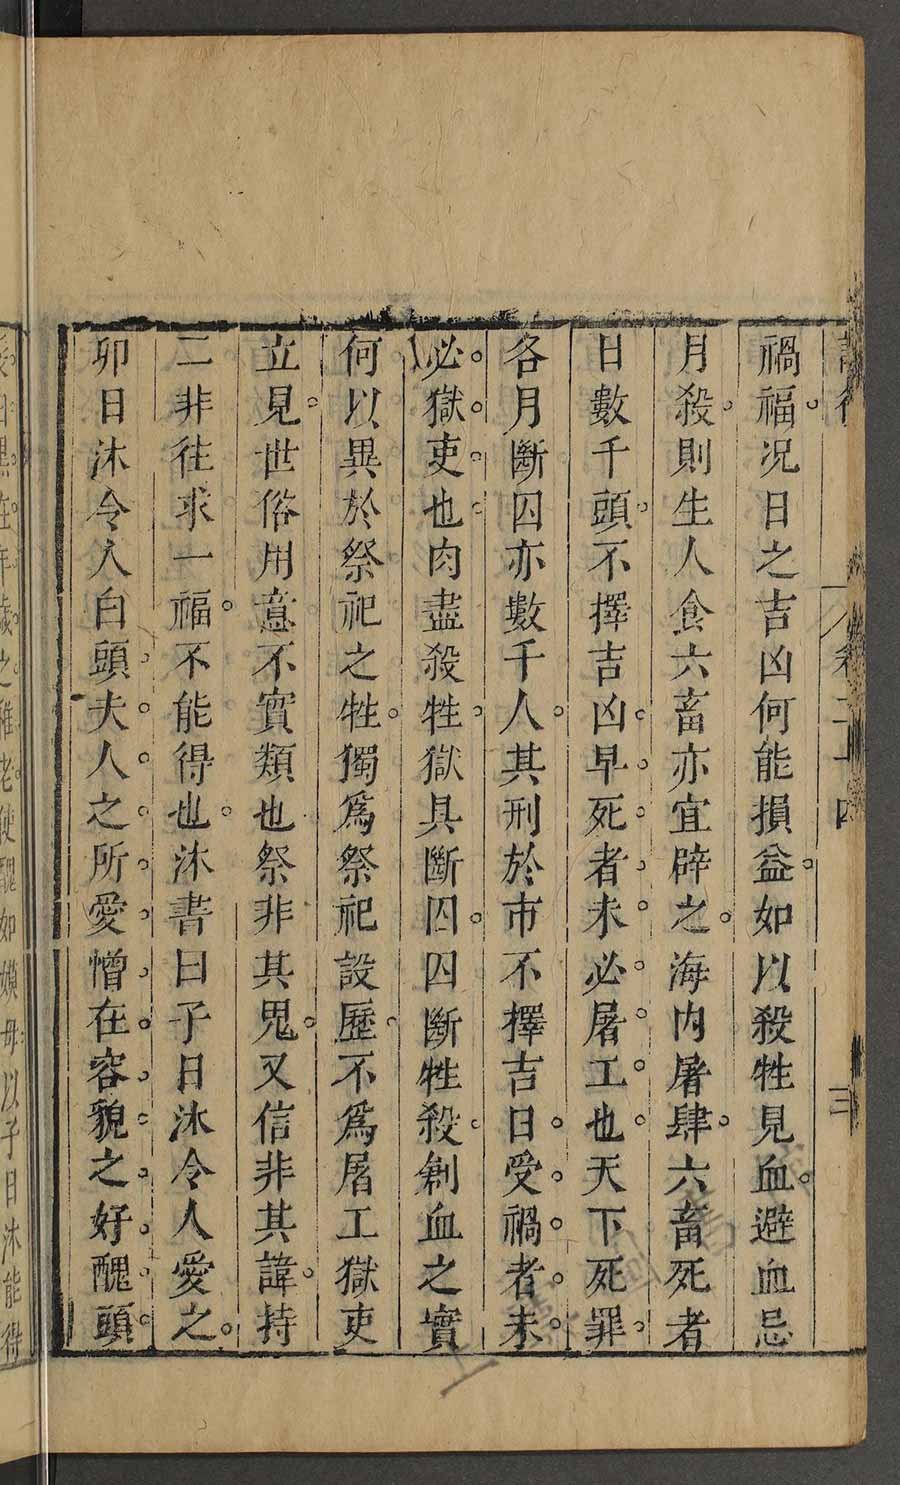 論衡 卷二十四 三
禍福。况日之吉凶何能損益。如以殺牲見血。避血忌
月殺。則生人食六畜亦宜辟之。海内屠肆。六畜死者
日數千頭。不擇吉凶。早。死。者。未。必。屠。工。也。天下死罪。
各月斷囚亦數千人。其刑於市不擇吉日。受。禍。者。未。
必。獄。吏。也。肉盡殺牲。獄具斷囚。囚斷牲殺。創血之實
何以異於祭祀之牲。獨爲祭祀設歷。不爲屠工獄吏
立見。世俗用意不實類也祭非其鬼。又信非其諱。持
二非往求一福。不能得也。沐書曰子日沐令人愛之。
卯日沐令人白頭。夫。人。之。所。愛。憎。在。容。貌。之。好。醜。頭。